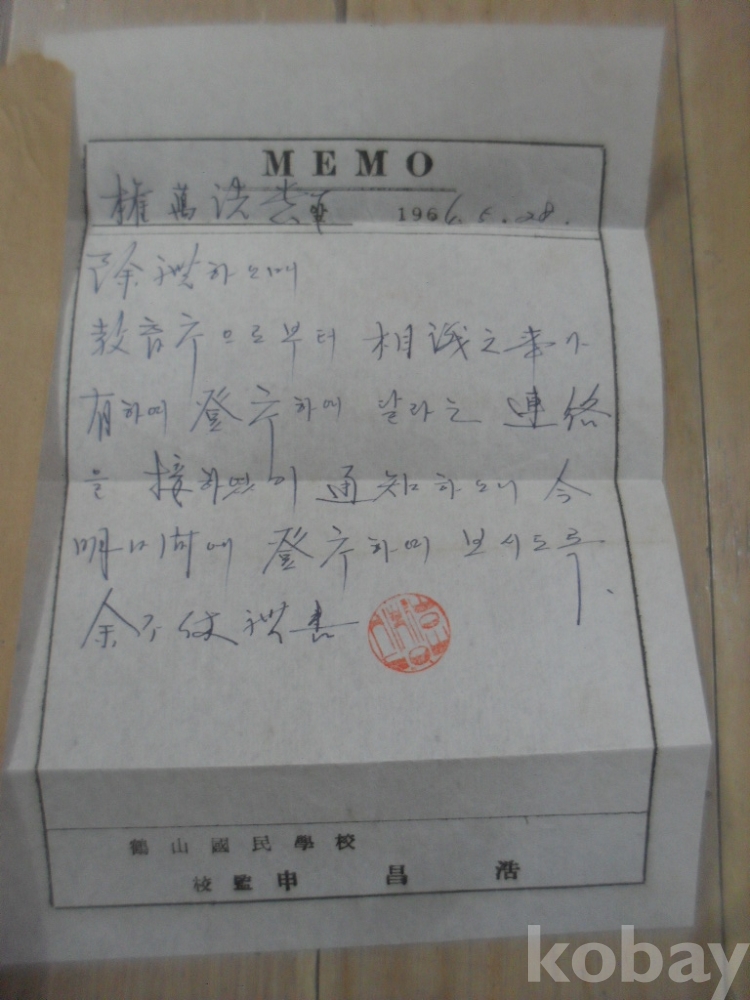 MEMO
權萬洪 1966. 5. 28.
除禮하오며
敎育廳으로부터 相議之事가
有하여 登廳하여 달라는 連絡
을 接하였기 通知하오니 今
明 登廳하여 보시도록.
余不備禮
鶴山國民學校
校監 申昌浩
kobay